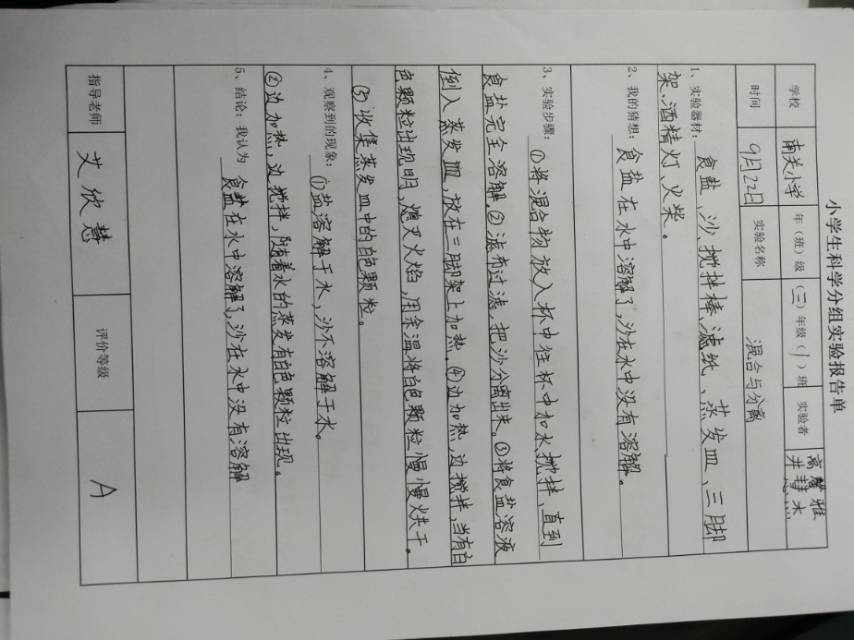 小学生科学分组实验报告单
学校 南关小学 年（班）级 （三）年级（1）班 实验者 高 雅 井
时间 9月22日 实验名称 混合与分离
1、实验器材：食盐、沙、搅拌棒、滤纸、蒸发皿、三脚
架、酒精灯、火柴。
2、我的猜想：食盐在水中溶解了，沙在水中没有溶解。
3、实验步骤：①将混合物放入杯中往杯中加水，搅拌，直到
食盐完全溶解。②滤布过滤，把沙分离出来。③将食盐溶液
倒入蒸发皿，放在三脚架上加热。④边加热，边搅拌，当有白
色颗粒出现时，熄灭火焰，用余温将白色颗粒慢慢烘干。
⑤收集蒸发皿中的白色颗粒。
4、观察到的现象：①盐溶解于水，沙不溶解于水。
②边加热，边搅拌，随着水的蒸发有白色颗粒出现。
5、结论：我认为 食盐在水中溶解了，沙在水中没有溶解
指导老师 艾欣慧 评价等级 A